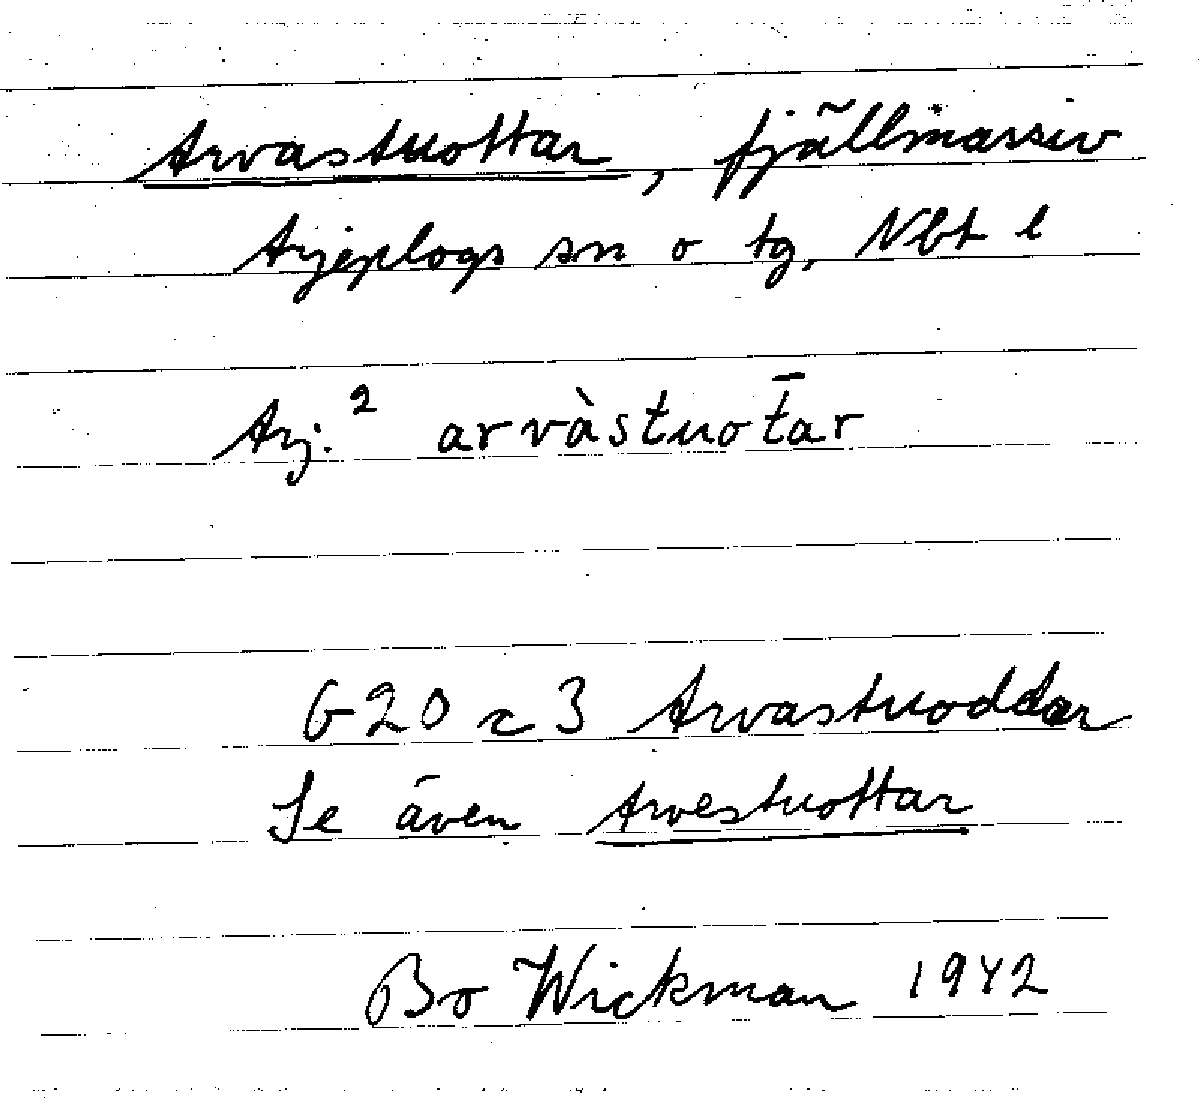 Arvastuottar, fjällmassiv
Arjeplogs sn o tg, Nbt l
Arj.² arvàstuot̄ar
G20 z 3 Arvastuoddar
Se även Arvestuottar
Bo Wickman 1942